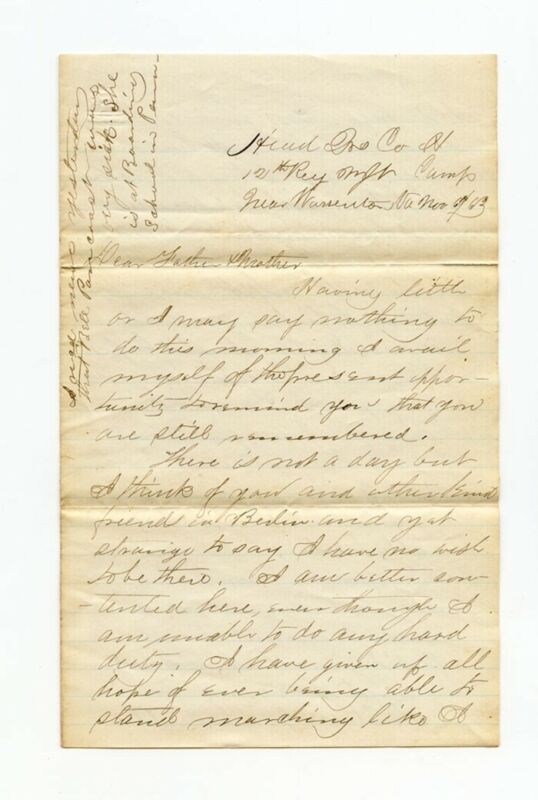 Head Qrs Co H
12th Reg NJV Camp
Near Warrenton Va Nov 63
Dear Father & Mother
Having little
or I may say nothing to
do this morning I avail
myself of the present oppor-
tunity to remind you that you
are still remembered.
There is not a day but
I think of you and other kind
friend in Berlin and yet
strange to say I have no wish
to be there. I am better con-
-tented here, even though I
am unable to do any hard
duty. I have given up all
hope of ever being able to
stand marching like I
I rec'd news yesterday
that Bell Pancoast was
very sick. She
is at Boarding
School in Penn-